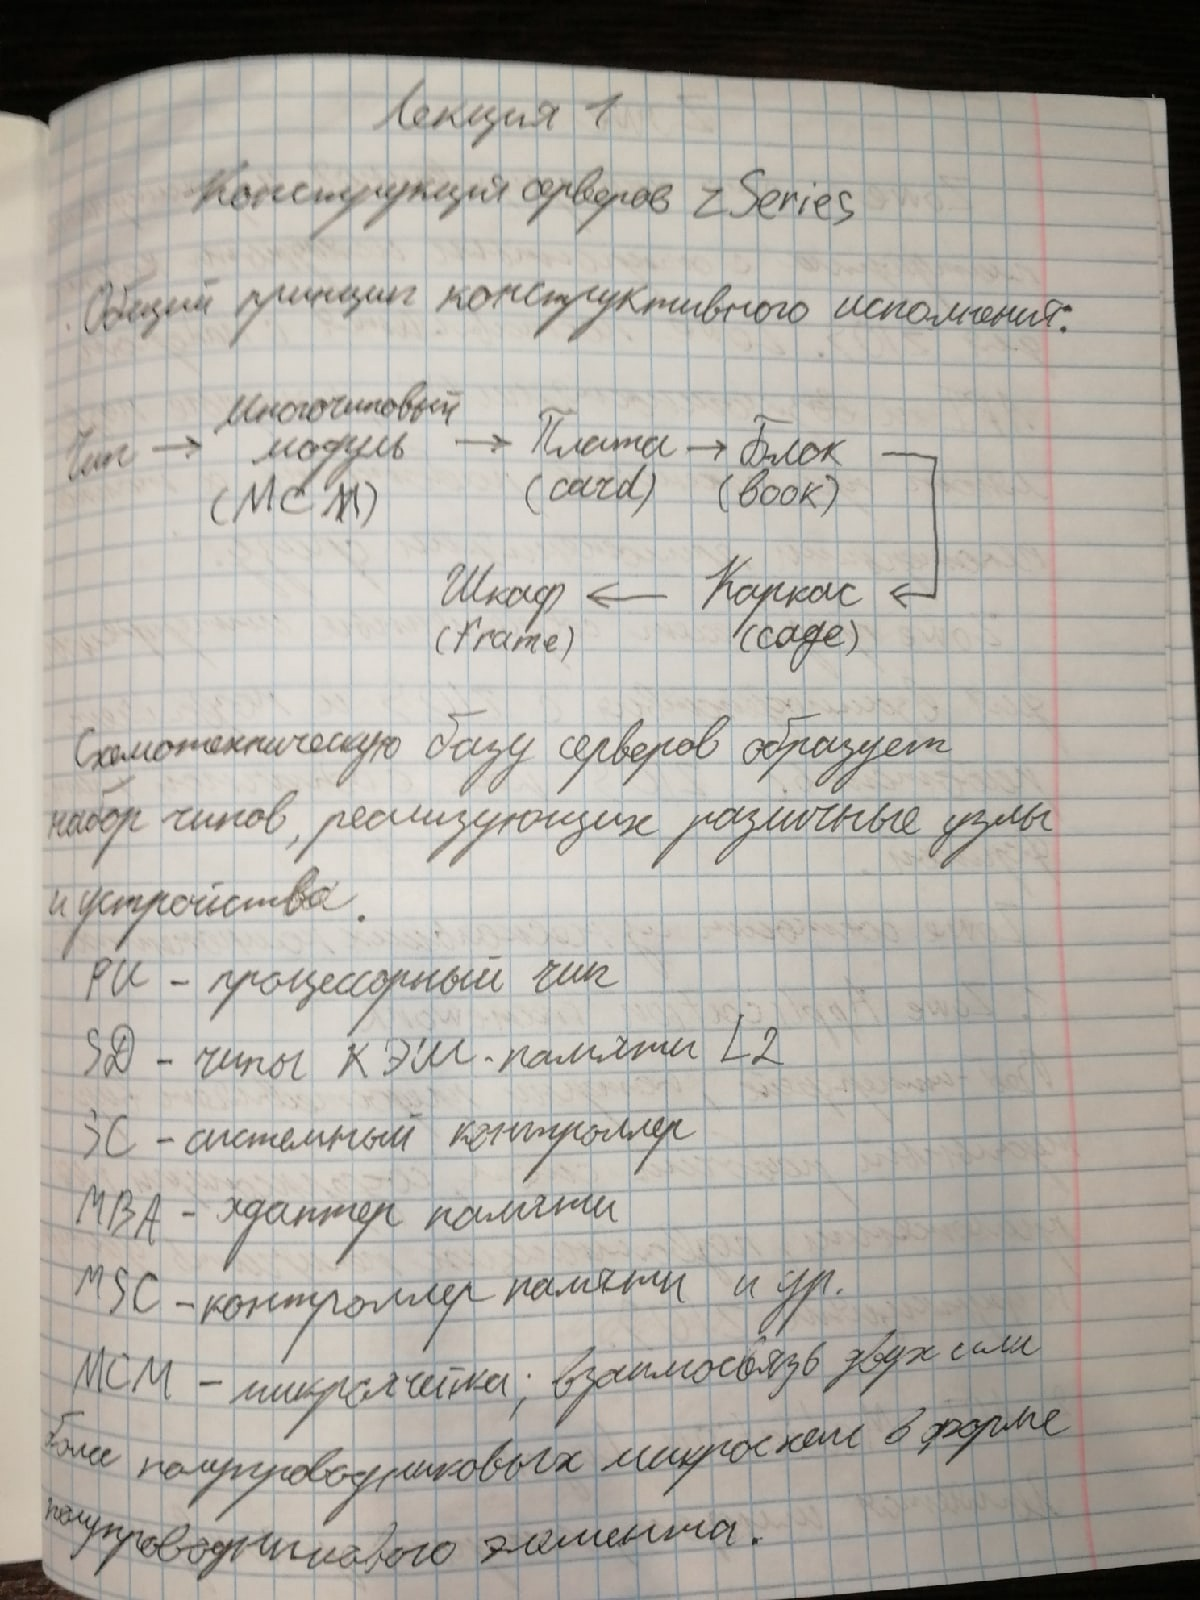 Лекция 1
Конструкция серверов zSeries
Общий принцип конструктивного исполнения:
Чип → Многочиповый модуль (МСМ) → Плата (card) → Блок (book)
Шкаф (frame) ← Каркас (cage) ←
Схемотехническую базу серверов образует
набор чипов, реализующих различные узлы
и устройства.
PU - процессорный чип
SD - чипы КЭШ-памяти L2
SC - системный контроллер
MBA - адаптер памяти
MSC - контроллер памяти и др.
MCM - микроячейка; взаимосвязь двух или
более полупроводниковых микросхем в форме
полупроводникового элемента.